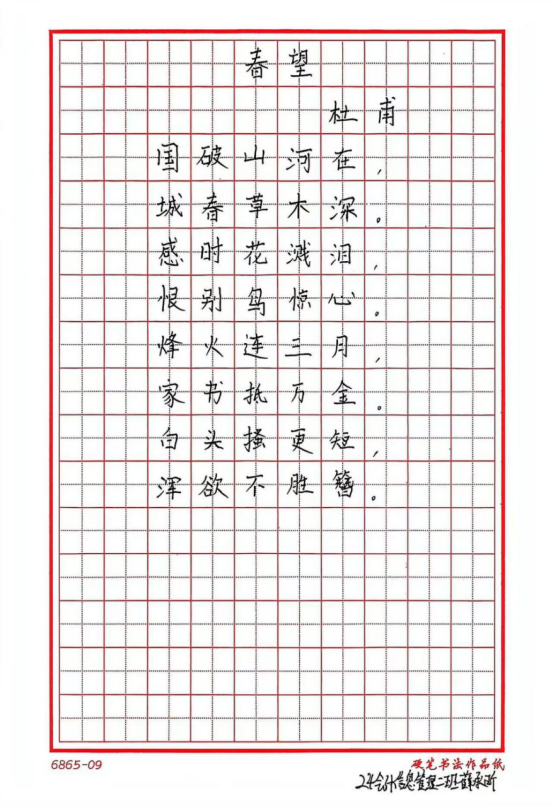 春望
杜甫
国破山河在，
城春草木深。
感时花溅泪，
恨别鸟惊心。
烽火连三月，
家书抵万金。
白头搔更短，
浑欲不胜簪。
6865-09
硬笔书法作品纸
24会计信息管理二班薛